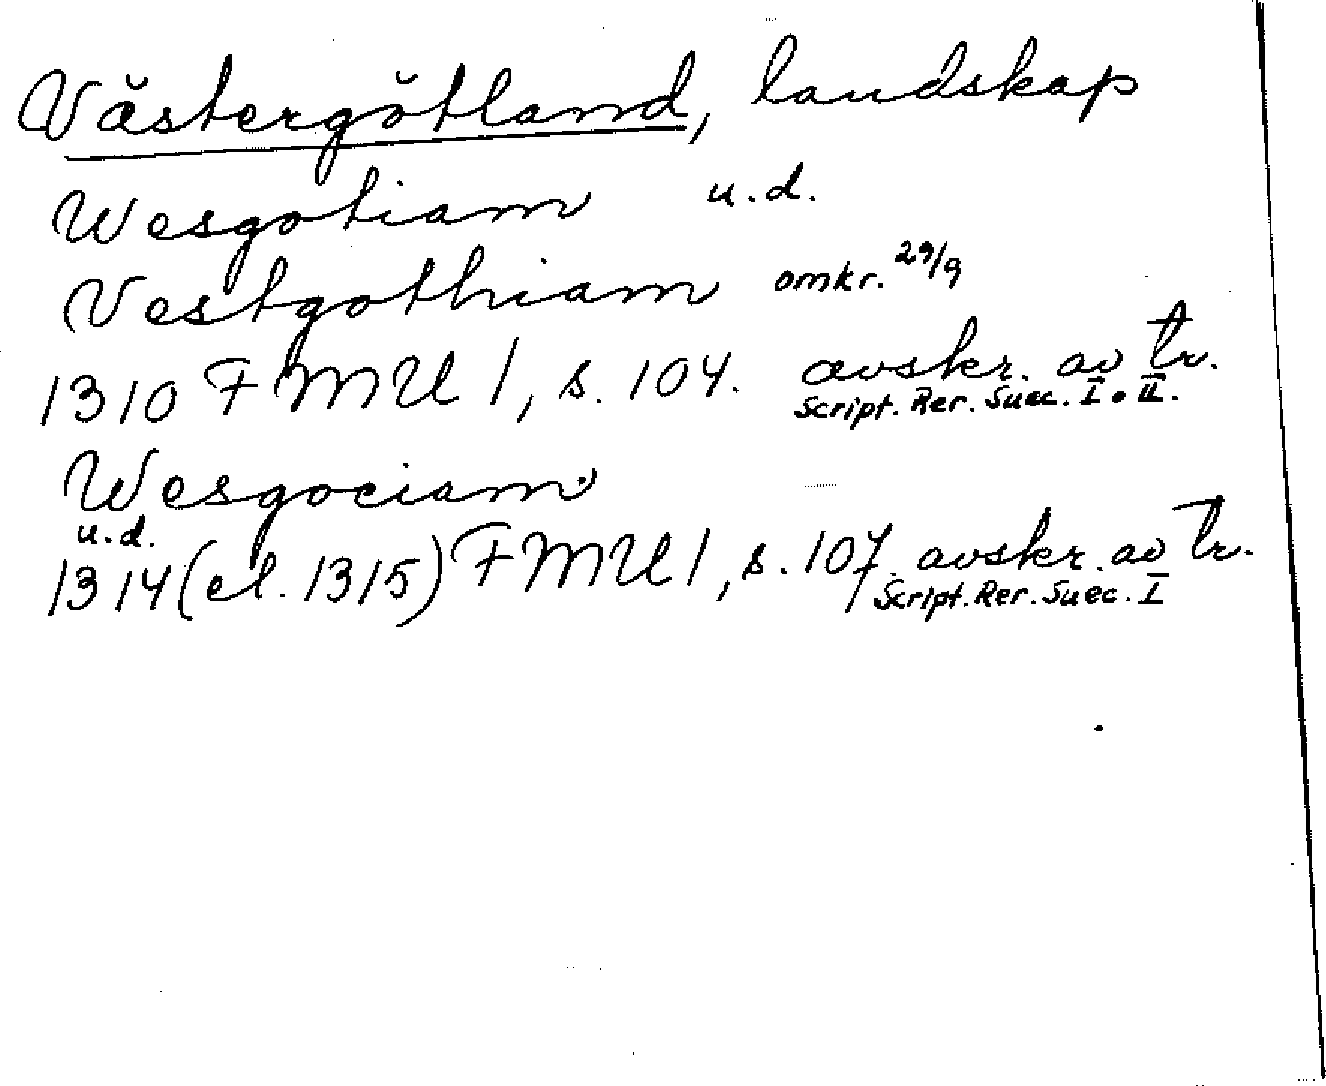 Västergötland, landskap
Wesgotiam u.d.
Vestgothiam omkr. 29/9
1310 FMU 1, s. 104. avskr. av tr.
Script. Rer. Suec. I o. II.
Wesgociam
u.d.
1314 (el. 1315) FMU 1, s. 107. avskr. av tr.
Script. Rer. Suec. I